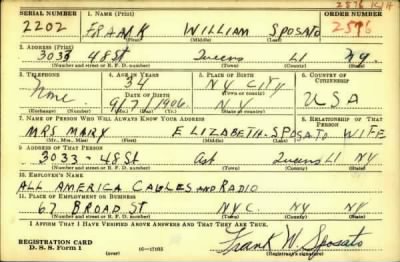 2576 K/H
SERIAL NUMBER 1. NAME (Print) ORDER NUMBER
2202 FRANK WILLIAM SPOSATO 2576
(First) (Middle) (Last)
2. ADDRESS (Print)
3033 48 St Queens LI N.Y.
(Number and street or R. F. D. number) (Town) (County) (State)
3. TELEPHONE 4. AGE IN YEARS 5. PLACE OF BIRTH 6. COUNTRY OF CITIZENSHIP
None 34 N.Y. CITY
DATE OF BIRTH USA
9/7/1906 N.Y.
(Exchange) (Number) (Mo.) (Day) (Yr.) (State or country)
7. NAME OF PERSON WHO WILL ALWAYS KNOW YOUR ADDRESS 8. RELATIONSHIP OF THAT PERSON
MRS. MARY ELIZABETH-SPOSATO WIFE
(Mr., Mrs., Miss) (First) (Middle) (Last)
9. ADDRESS OF THAT PERSON
3033 - 48 St Queens LI NY
(Number and street or R. F. D. number) (Town) (County) (State)
10. EMPLOYER'S NAME
ALL AMERICA CABLES AND RADIO
11. PLACE OF EMPLOYMENT OR BUSINESS
67 BROAD ST N.Y.C. NY NY
(Number and street or R. F. D. number) (Town) (County) (State)
I AFFIRM THAT I HAVE VERIFIED ABOVE ANSWERS AND THAT THEY ARE TRUE.
REGISTRATION CARD
D. S. S. Form 1 (over) 16—17105 Frank W. Sposato
(Registrant's signature)